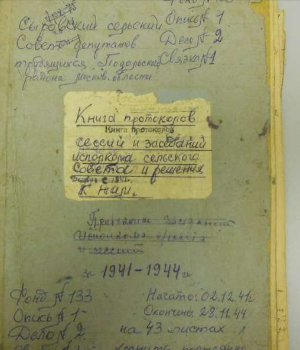 Фонд №
Сыровский сельский Опись № 1
Совет депутатов Дело № 2
трудящихся Подольского Связка № 1
района москов. области
Книга протоколов
Книга протоколов
сессий и заседаний
исполкома сельского
Совета и решения
к ним.
Протоколы заседаний
исполкома
и сессий
за 1941-1944 г
Фонд № 133 Начато: 02.12.41
Опись № 1 Окончено: 28.11.44
Дело № 2 на 43 листах